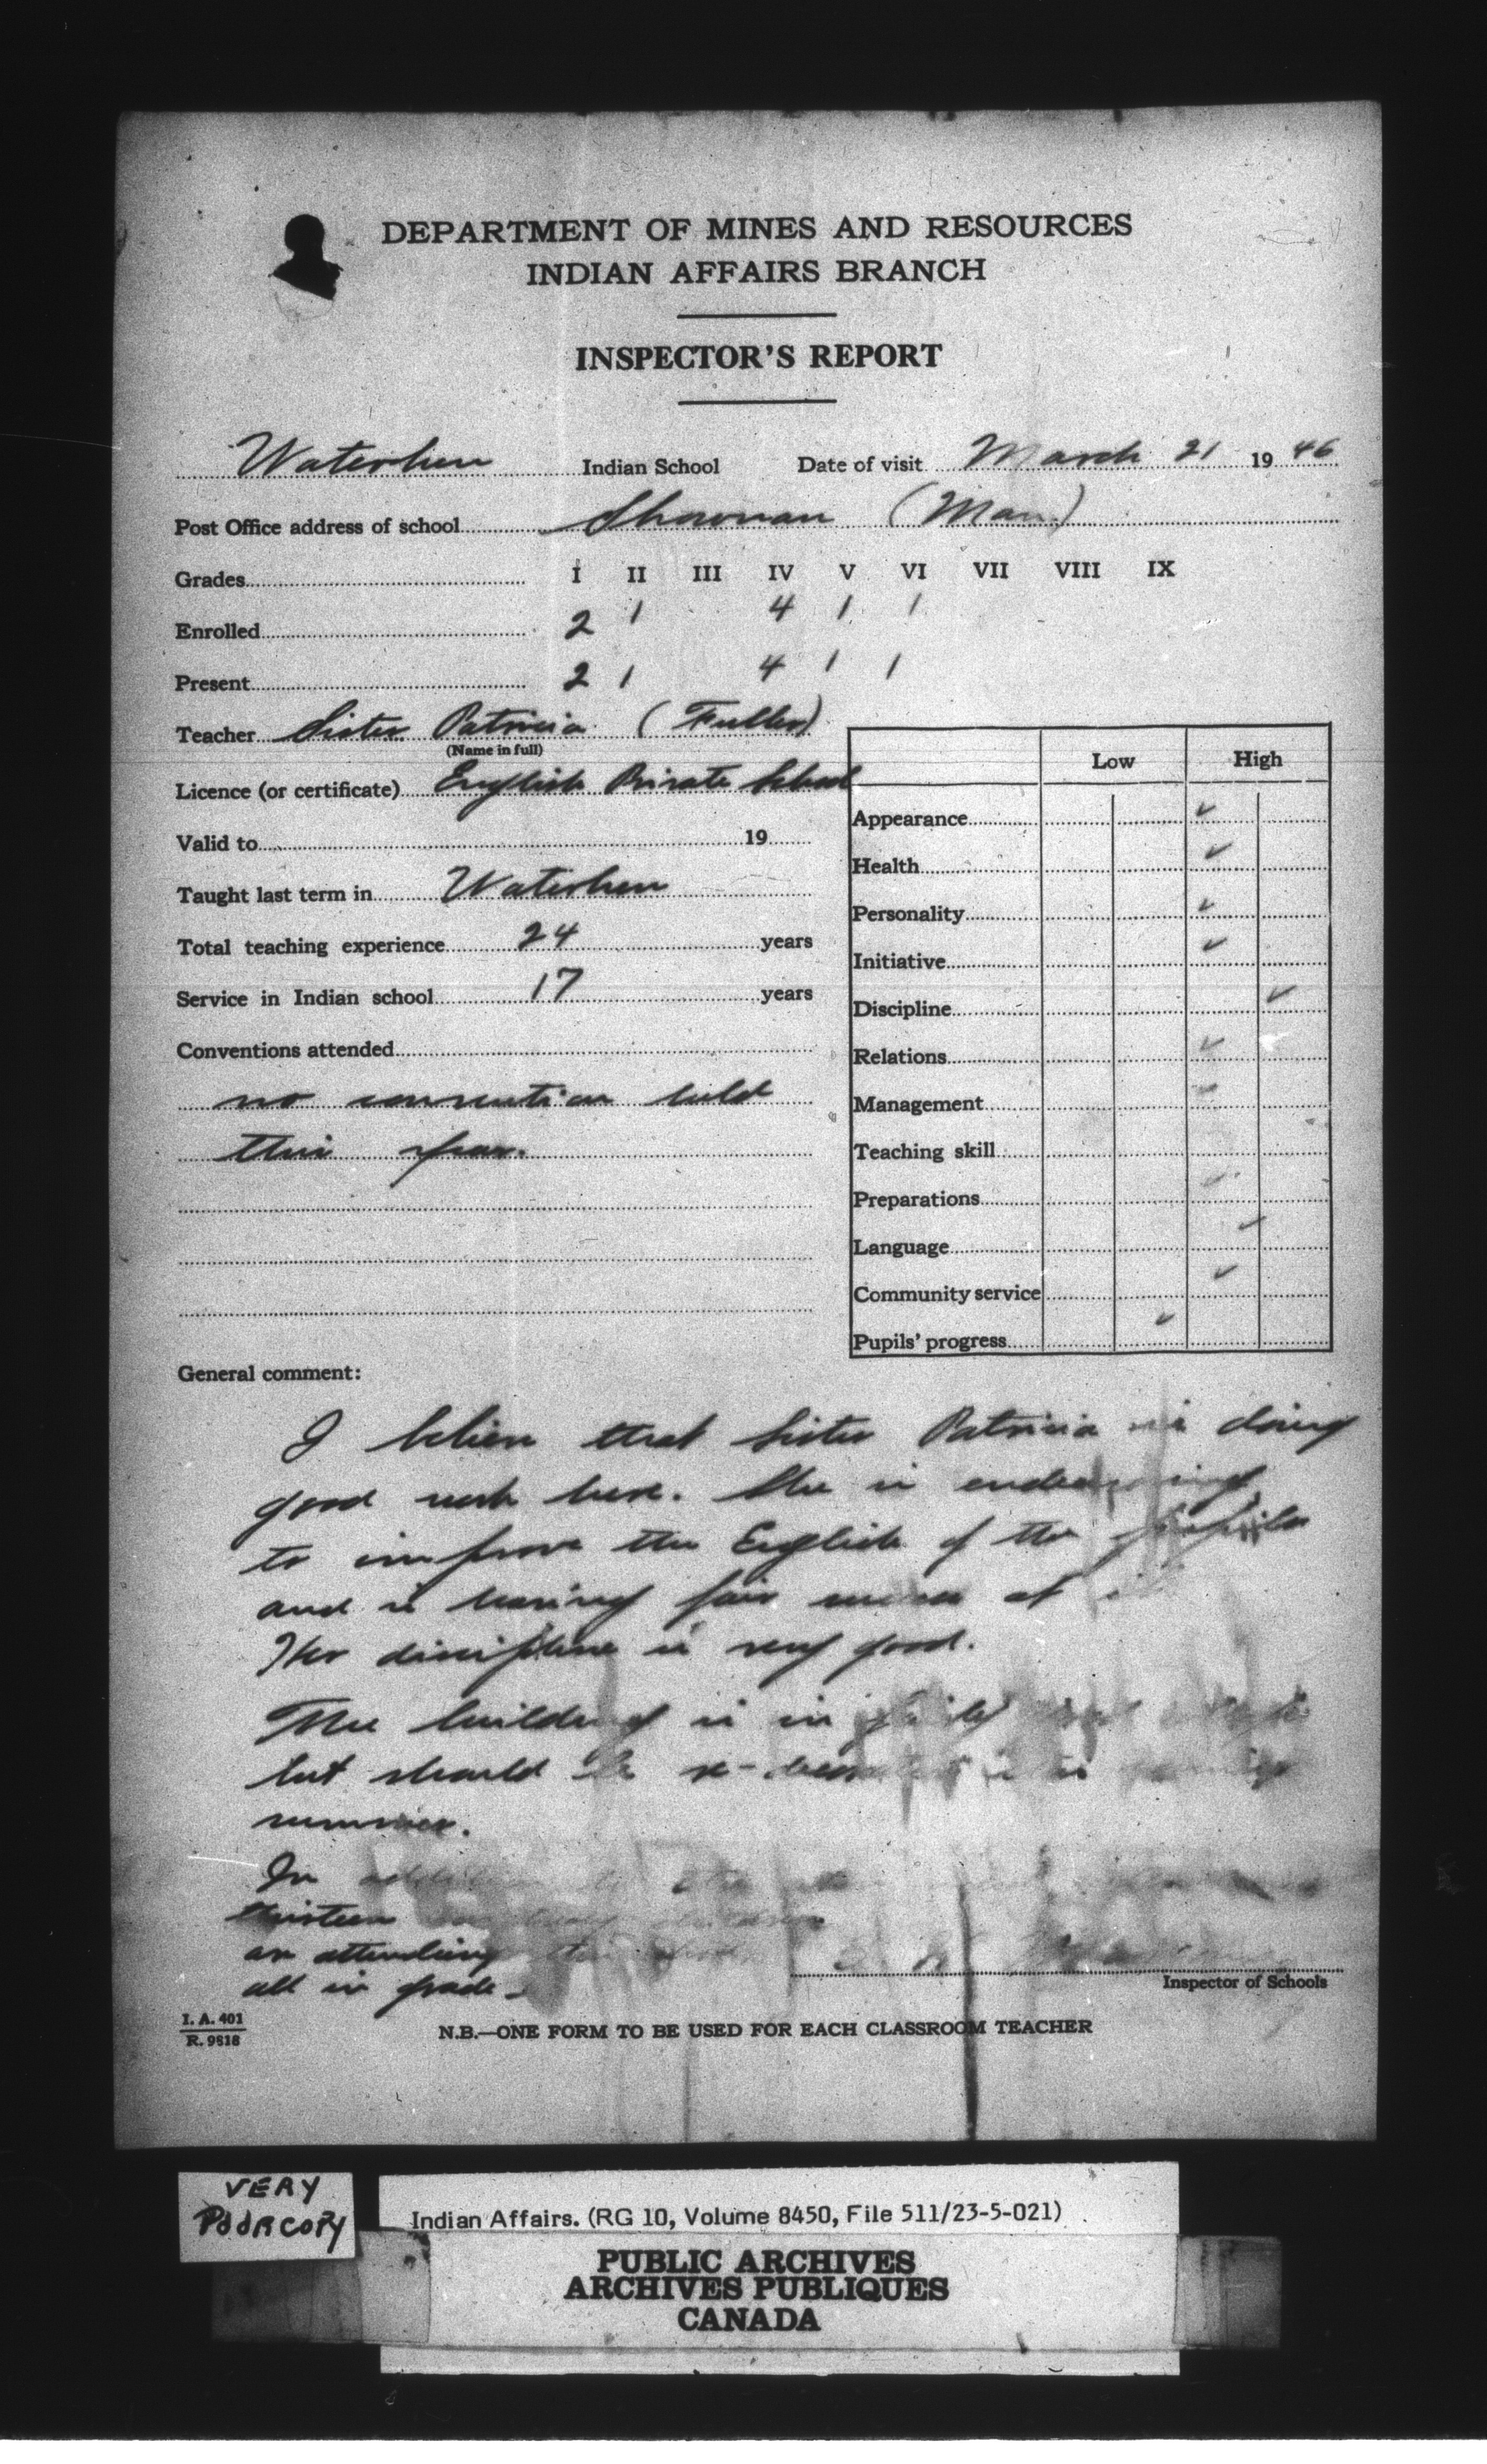 DEPARTMENT OF MINES AND RESOURCES
INDIAN AFFAIRS BRANCH
INSPECTOR'S REPORT
Waterhen Indian School Date of visit March 21 1946
Post Office address of school (Man.)
Grades I II III IV V VI VII VIII IX
Enrolled 2 1 4 1 1
Present 2 1 4 1 1
Teacher Sister Patricia (Fuller)
(Name in full)
Licence (or certificate) English Private School
Valid to 19
Taught last term in Waterhen
Total teaching experience 24 years
Service in Indian school 17 years
Conventions attended
no convention held
this year.
Low High
Appearance ✓
Health ✓
Personality ✓
Initiative ✓
Discipline ✓
Relations ✓
Management
Teaching skill
Preparations
Language ✓
Community service ✓
Pupils' progress ✓
General comment:
I believe that Sister Patricia is doing
good work here. She is endeavoring
to improve the English of the pupils
and is having fair success at it
Her discipline is very good.
The building is in
but should be re-decorated
summer.
In addition to the
thirteen
are attending
all in grade
Inspector of Schools
I. A. 401
R. 9818
N.B.—ONE FORM TO BE USED FOR EACH CLASSROOM TEACHER
VERY
POOR COPY
Indian Affairs. (RG 10, Volume 8450, File 511/23-5-021)
PUBLIC ARCHIVES
ARCHIVES PUBLIQUES
CANADA